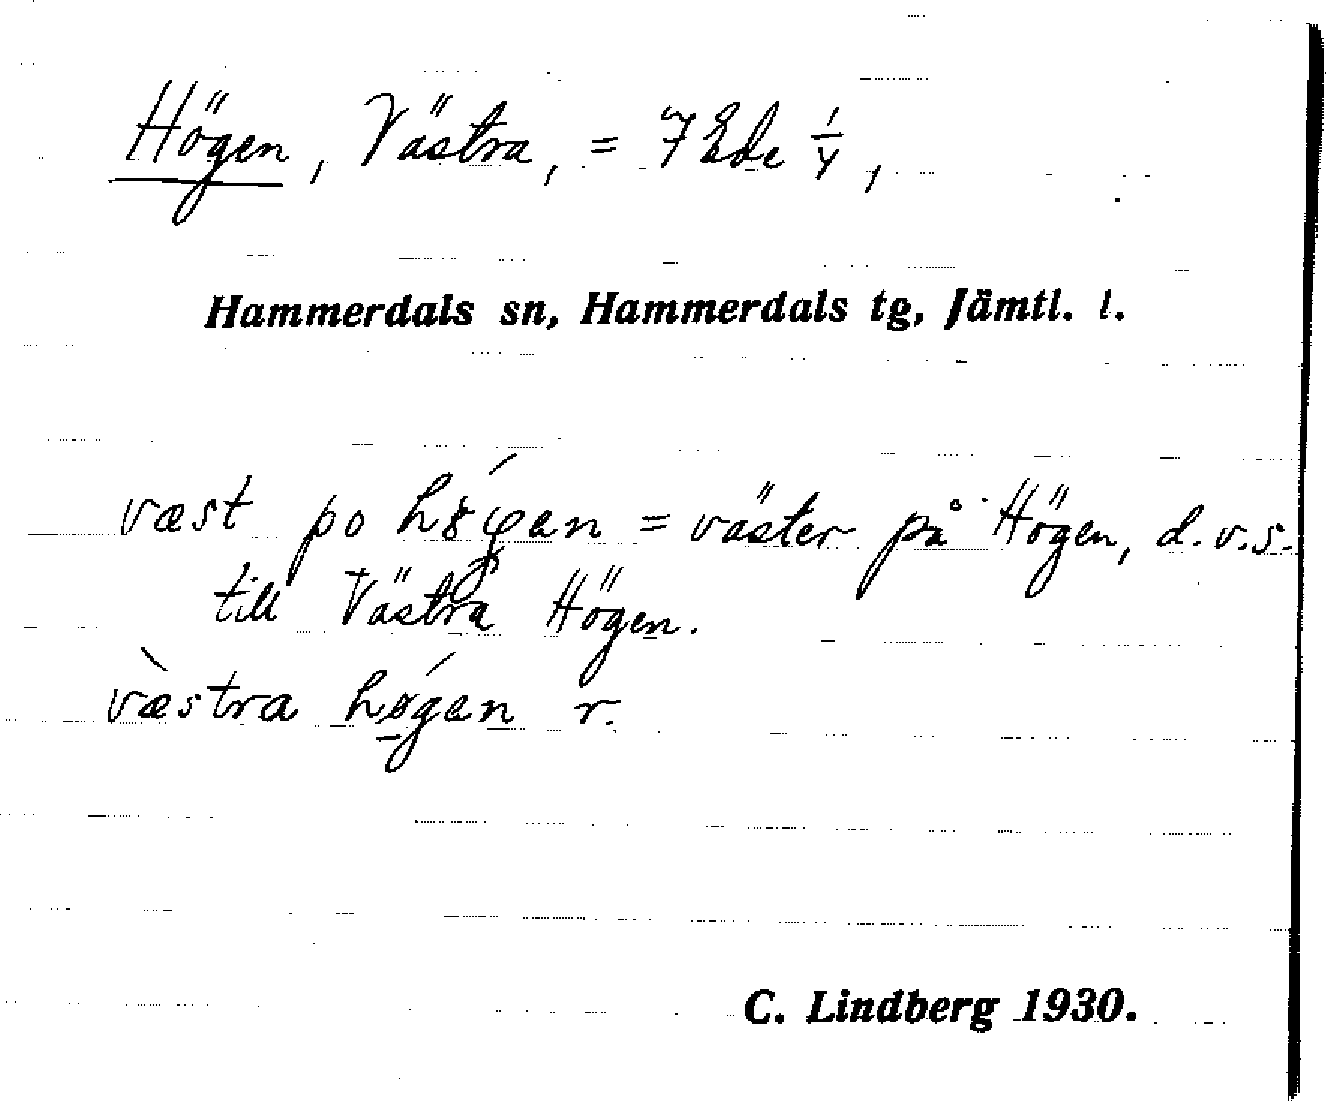 Högen, Västra, = 7 Ede 1/4,
Hammerdals sn, Hammerdals tg, Jämtl. l.
væst po høgen = väster på Högen, d.v.s.
till Västra Högen.
væstra høgen r.
C. Lindberg 1930.